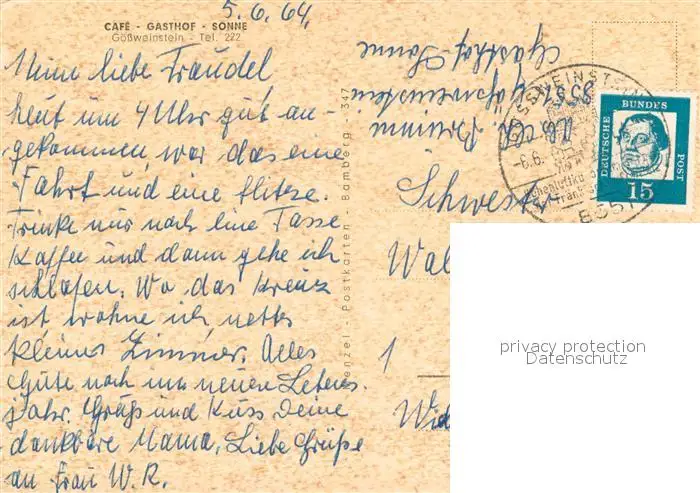 5.6.64,
CAFÉ - GASTHOF - SONNE
Gößweinstein - Tel. 222
Meine liebe Traudel,
heut um 4 Uhr gut an-
gekommen, war das eine
Fahrt und eine Hitze.
Trinke nur noch eine Tasse
Kaffee und dann gehe ich
schlafen. Wo das Kreuz
ist, wohne ich, nettes
kleines Zimmer. Alles
Gute noch im neuen Lebens-
jahr. Gruß und Kuss Deine
dankbare Mama. Liebe Grüße
an Frau W. R.
enzel - Postkarten - Bamberg - 347
Gasthof-Sonne
Gößweinstein
8557
Schwester
Wal
1
Wid
DEUTSCHE
BUNDES
POST
15
8557
privacy protection
Datenschutz